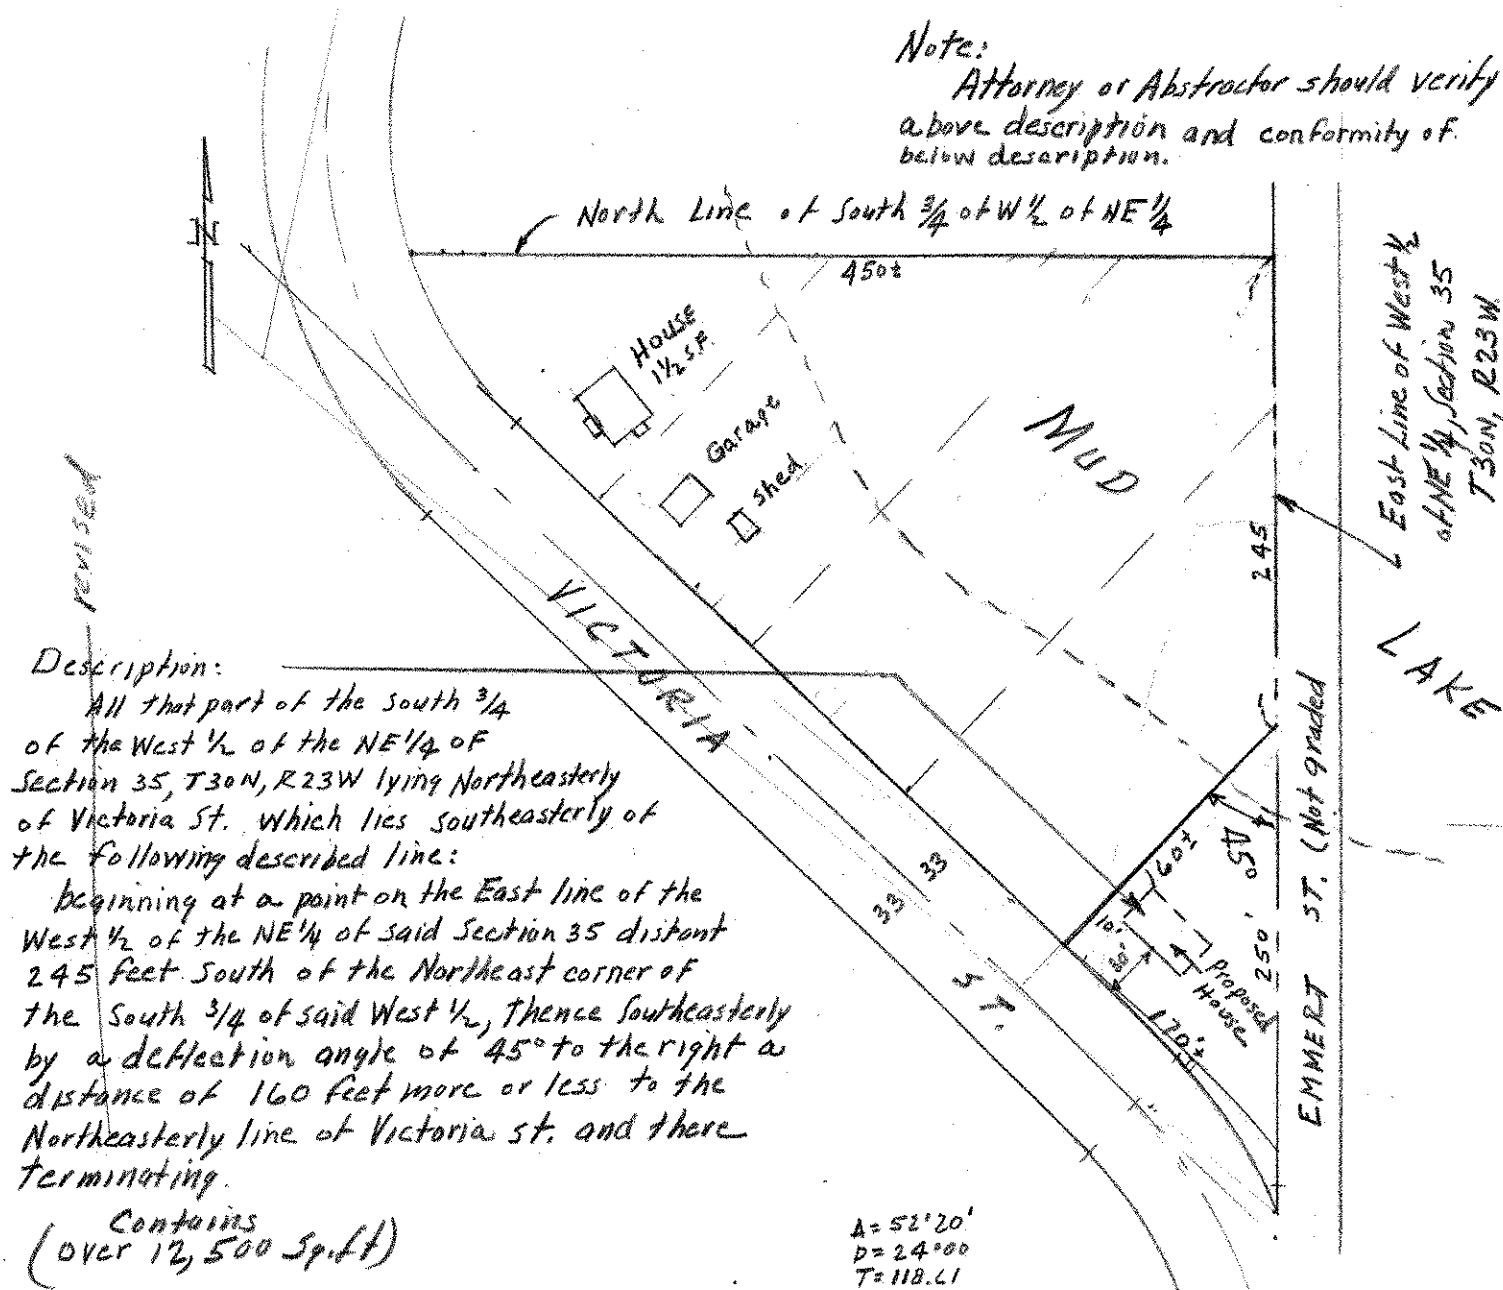 Note:
Attorney or Abstractor should verify
above description and conformity of
below description.
N
North Line of South 3/4 of W 1/2 of NE 1/4
450±
House
1 1/2 S.F.
Garage
Shed
MUD
LAKE
East Line of West 1/2
of NE 1/4, Section 35
T30N, R23W
245
revised
VICTORIA
ST.
33
33
Description:
All that part of the South 3/4
of the West 1/2 of the NE 1/4 of
Section 35, T30N, R23W lying Northeasterly
of Victoria St. which lies Southeasterly of
the following described line:
beginning at a point on the East line of the
West 1/2 of the NE 1/4 of said Section 35 distant
245 feet South of the Northeast corner of
the South 3/4 of said West 1/2, Thence Southeasterly
by a deflection angle of 45° to the right a
distance of 160 feet more or less to the
Northeasterly line of Victoria St. and there
terminating.
Contains
(over 12,500 Sq.ft)
160±
45°
10'
30'
Proposed
House
170'±
250'
EMMERT ST. (Not graded
Δ = 52°20'
D = 24°00
T = 118.61